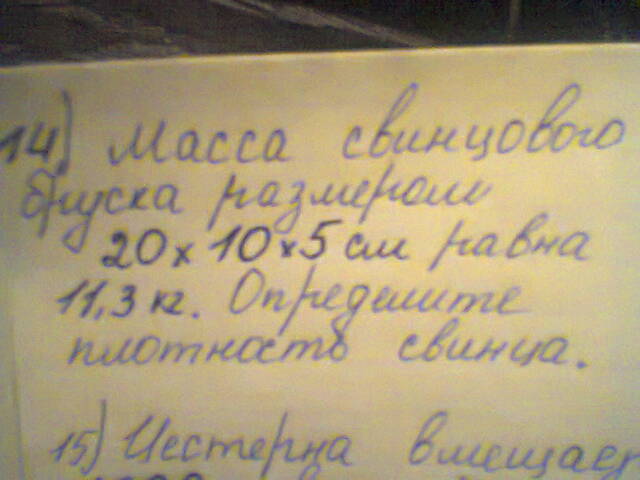 14) Масса свинцового
бруска размером
20 х 10 х 5 см равна
11,3 кг. Определите
плотность свинца.
15) Цистерна вмещает